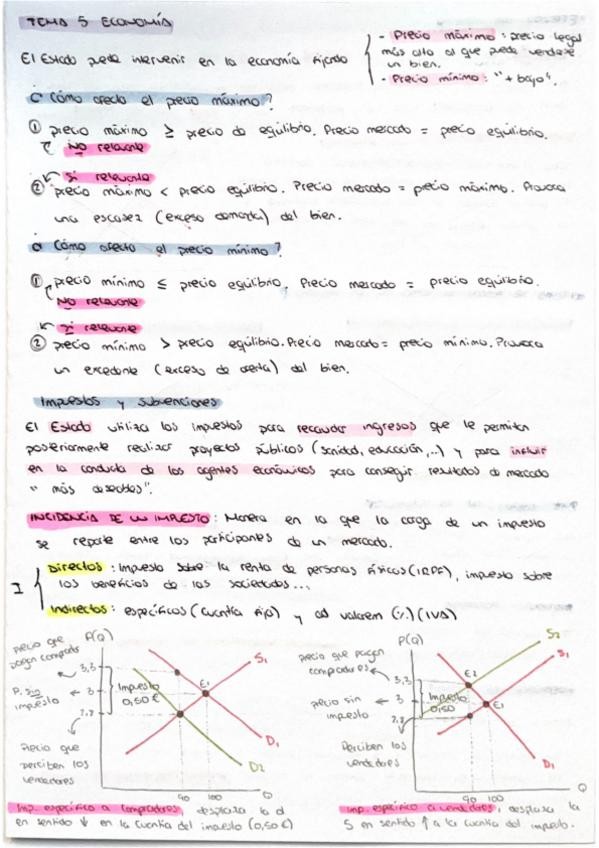 TEMA 5 ECONOMÍA
El Estado puede intervenir en la economía fijando
- Precio máximo: precio legal
más alto al que puede venderse
un bien.
- Precio mínimo: "+ bajo".
¿Cómo afecta el precio máximo?
① precio máximo ≥ precio de equilibrio. Precio mercado = precio equilibrio.
NO relevante
SI relevante
② precio máximo < precio equilibrio. Precio mercado = precio máximo. Provoca
una escasez (exceso demanda) del bien.
¿Cómo afecta el precio mínimo?
① precio mínimo ≤ precio equilibrio. Precio mercado = precio equilibrio.
NO relevante
SI relevante
② precio mínimo > precio equilibrio. Precio mercado = precio mínimo. Provoca
un excedente (exceso de oferta) del bien.
Impuestos y subvenciones
El Estado utiliza los impuestos para recaudar ingresos que le permiten
posteriormente realizar proyectos públicos (sanidad, educación,..) y para influir
en la conducta de los agentes económicos para conseguir resultados de mercado
"más deseables".
INCIDENCIA DE UN IMPUESTO: Manera en la que la carga de un impuesto
se reparte entre los participantes de un mercado.
I
Directos: Impuesto sobre la renta de personas físicas (IRPF), impuesto sobre
los beneficios de las sociedades...
Indirectos: específicos (cuantía fija) y ad valorem (%) (IVA)
Precio que
pagan comprads
P(Q)
3,3
P. sin
impuesto
3
2,8
Impuesto
0,50€
E1
S1
D1
D2
Precio que
perciben los
vendedores
90
100
Q
Imp. específico a compradores, desplaza la d
en sentido ↓ en la cuantía del impuesto (0,50€)
precio que pagan
compradores
P(Q)
3,3
precio sin
impuesto
3
2,8
Impuesto
0,50
E2
E1
S2
S1
D1
Perciben los
vendedores
90
100
Q
Imp. específico a vendedores, desplaza la
S en sentido ↑ a la cuantía del impuesto.